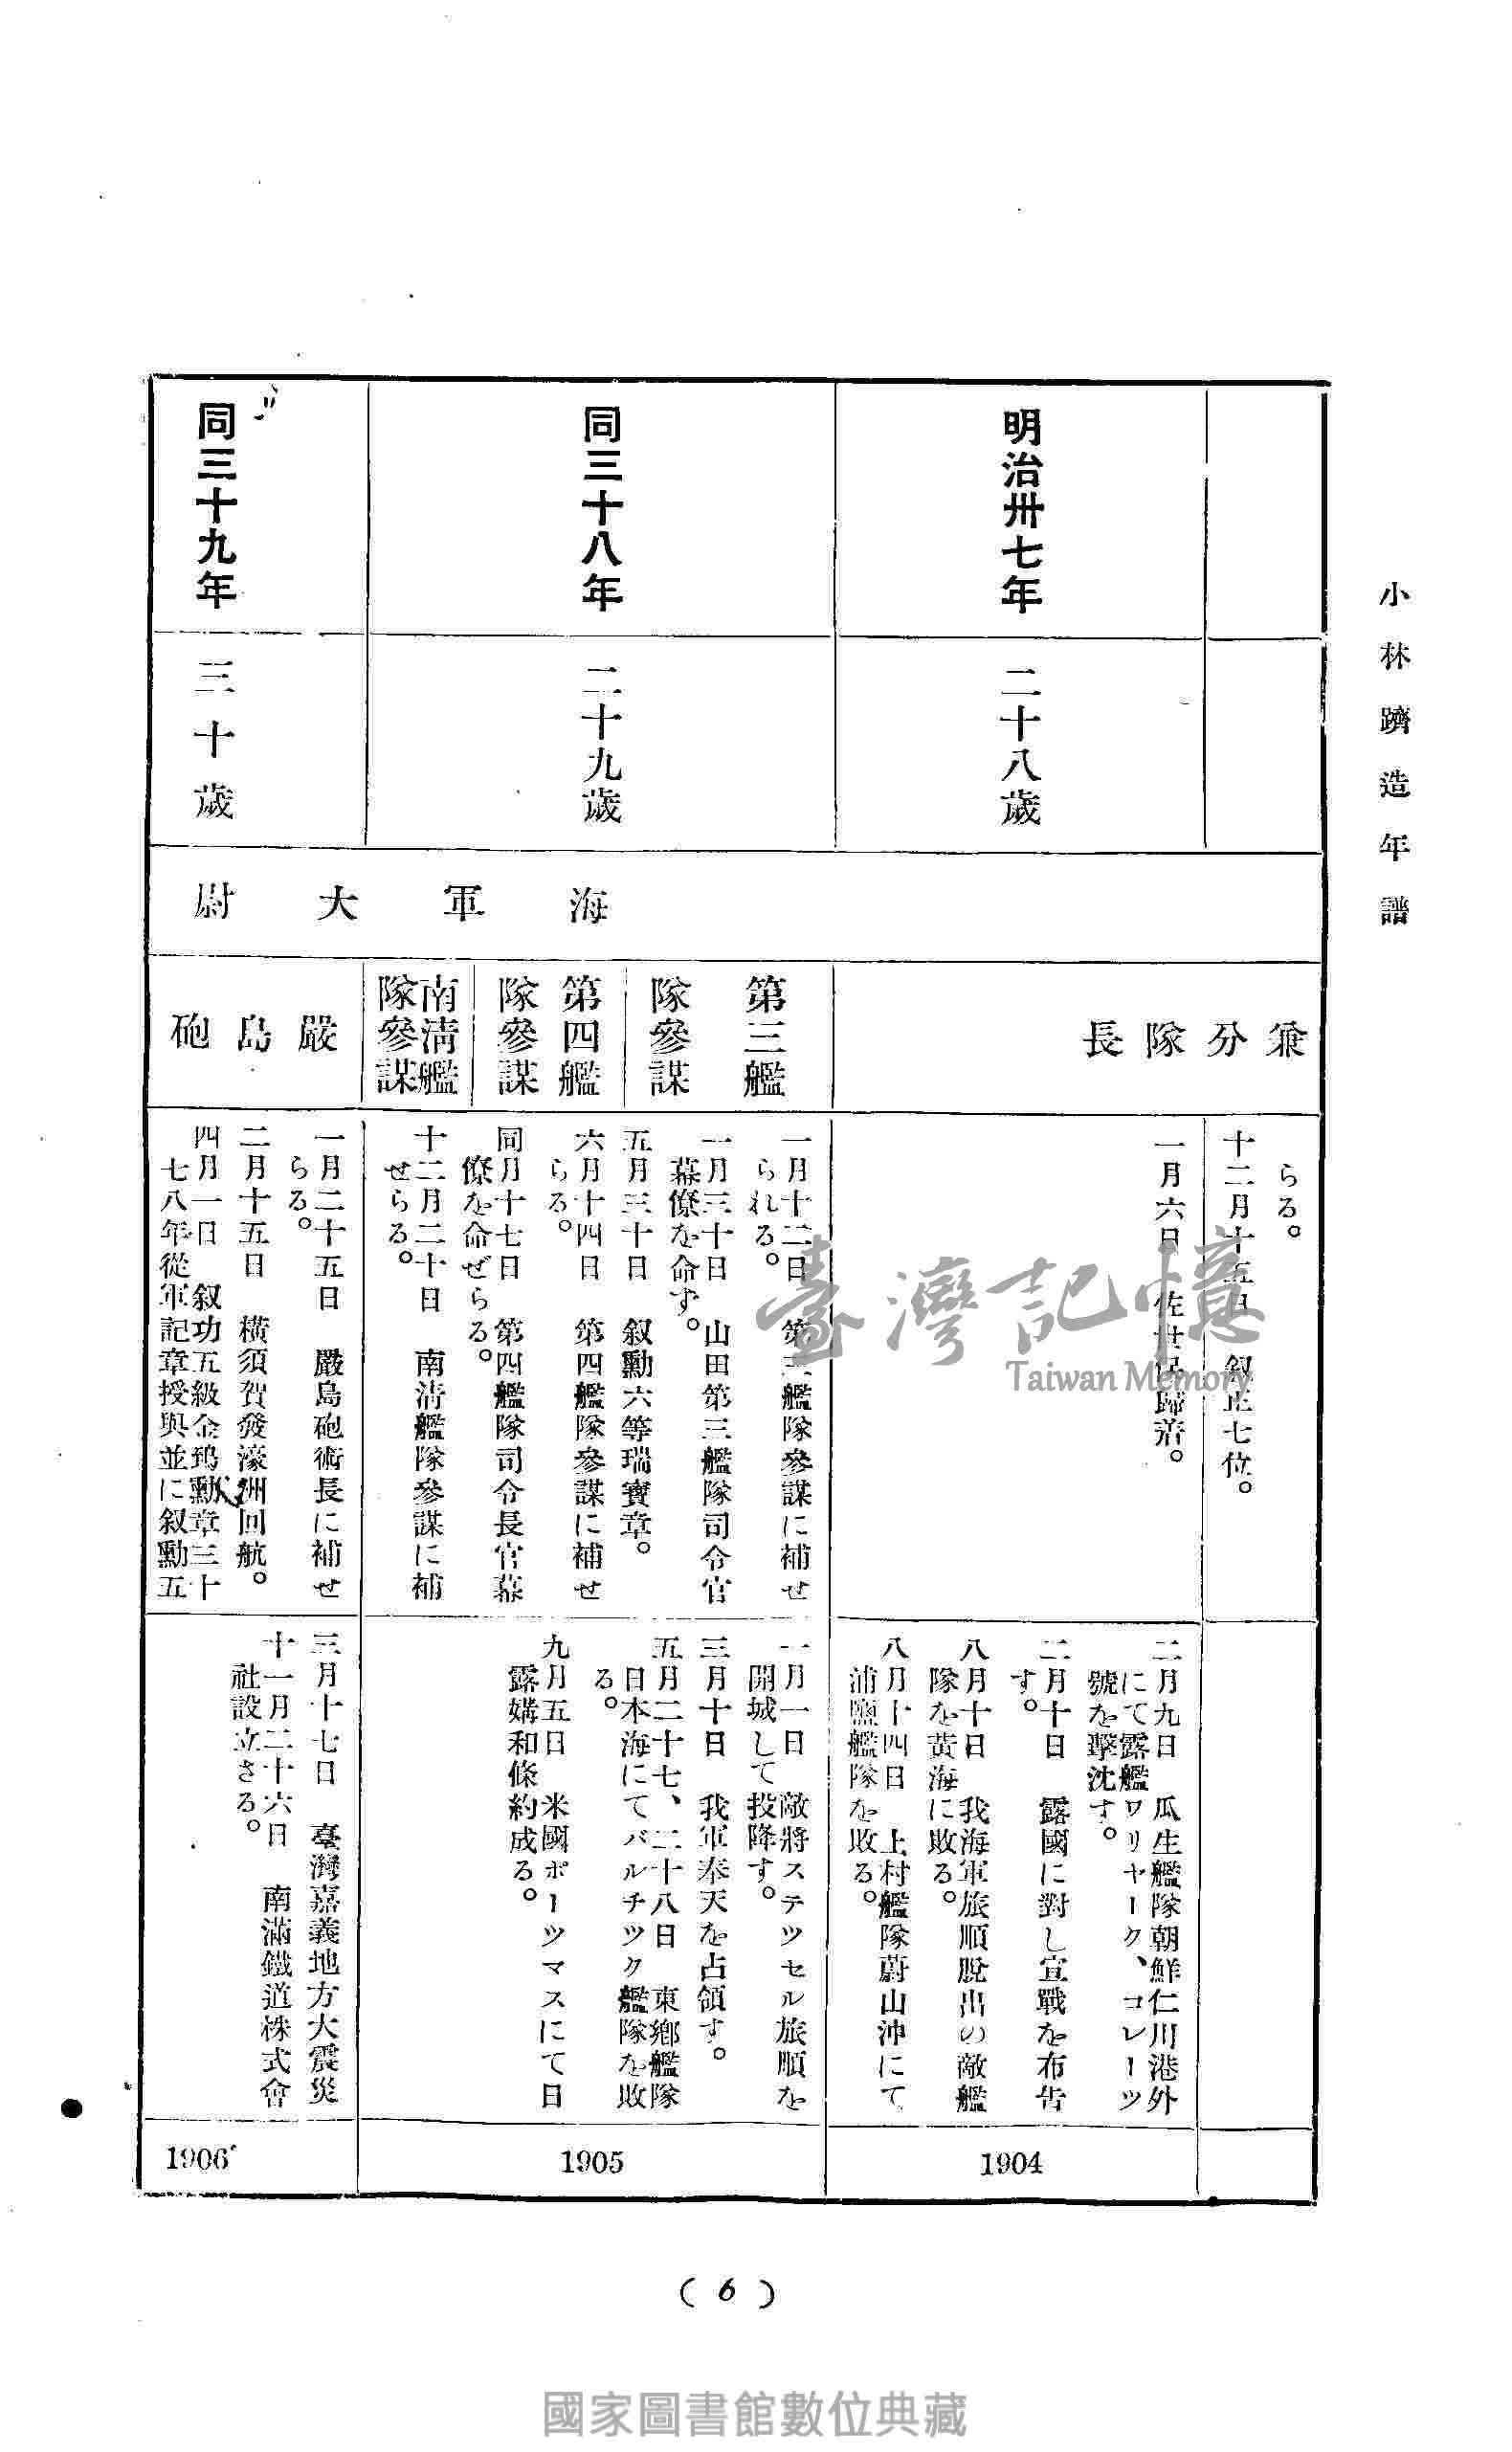 小林躋造年譜
明治卅七年
同三十八年
同三十九年
二十八歲
二十九歲
三十歲
海軍大尉
兼分隊長
第三艦
隊參謀
第四艦
隊參謀
南淸艦
隊參謀
嚴島砲
らる。
十二月十五日 叙正七位。
一月六日 佐世保歸着。
一月十二日 第三艦隊參謀に補せ
られる。
一月三十日 山田第三艦隊司令官
幕僚を命ず。
五月三十日 叙勳六等瑞寶章。
六月十四日 第四艦隊參謀に補せ
らる。
同月十七日 第四艦隊司令長官幕
僚を命ぜらる。
十二月二十日 南淸艦隊參謀に補
せらる。
一月二十五日 嚴島砲術長に補せ
らる。
二月十五日 橫須賀發濠洲回航。
四月一日 叙功五級金鵄勳章三十
七八年從軍記章授與並に叙勳五
二月九日 瓜生艦隊朝鮮仁川港外
にて露艦ワリヤーク、コレーツ
號を擊沈す。
二月十日 露國に對し宣戰を布吿
す。
八月十日 我海軍旅順脫出の敵艦
隊を黃海に敗る。
八月十四日 上村艦隊蔚山沖にて
浦鹽艦隊を敗る。
一月一日 敵將ステツセル旅順を
開城して投降す。
三月十日 我軍奉天を占領す。
五月二十七、二十八日 東鄕艦隊
日本海にてバルチツク艦隊を敗
る。
九月五日 米國ポーツマスにて日
露媾和條約成る。
三月十七日 臺灣嘉義地方大震災
十一月二十六日 南滿鐵道株式會
社設立さる。
1904
1905
1906
(6)
臺灣記憶
Taiwan Memory
國家圖書館數位典藏